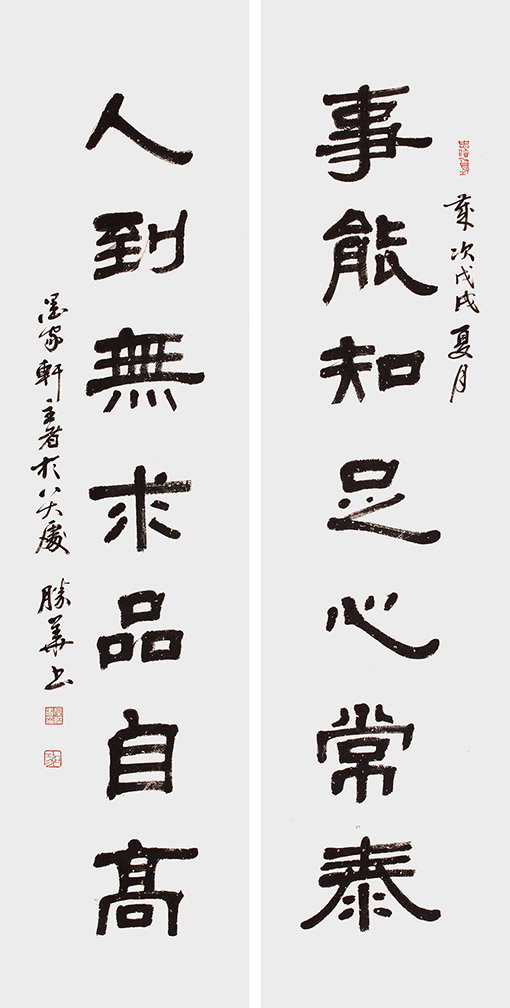 歲次戊戌夏月
事能知足心常泰
人到無求品自高
墨家軒主者於八大處 勝華書